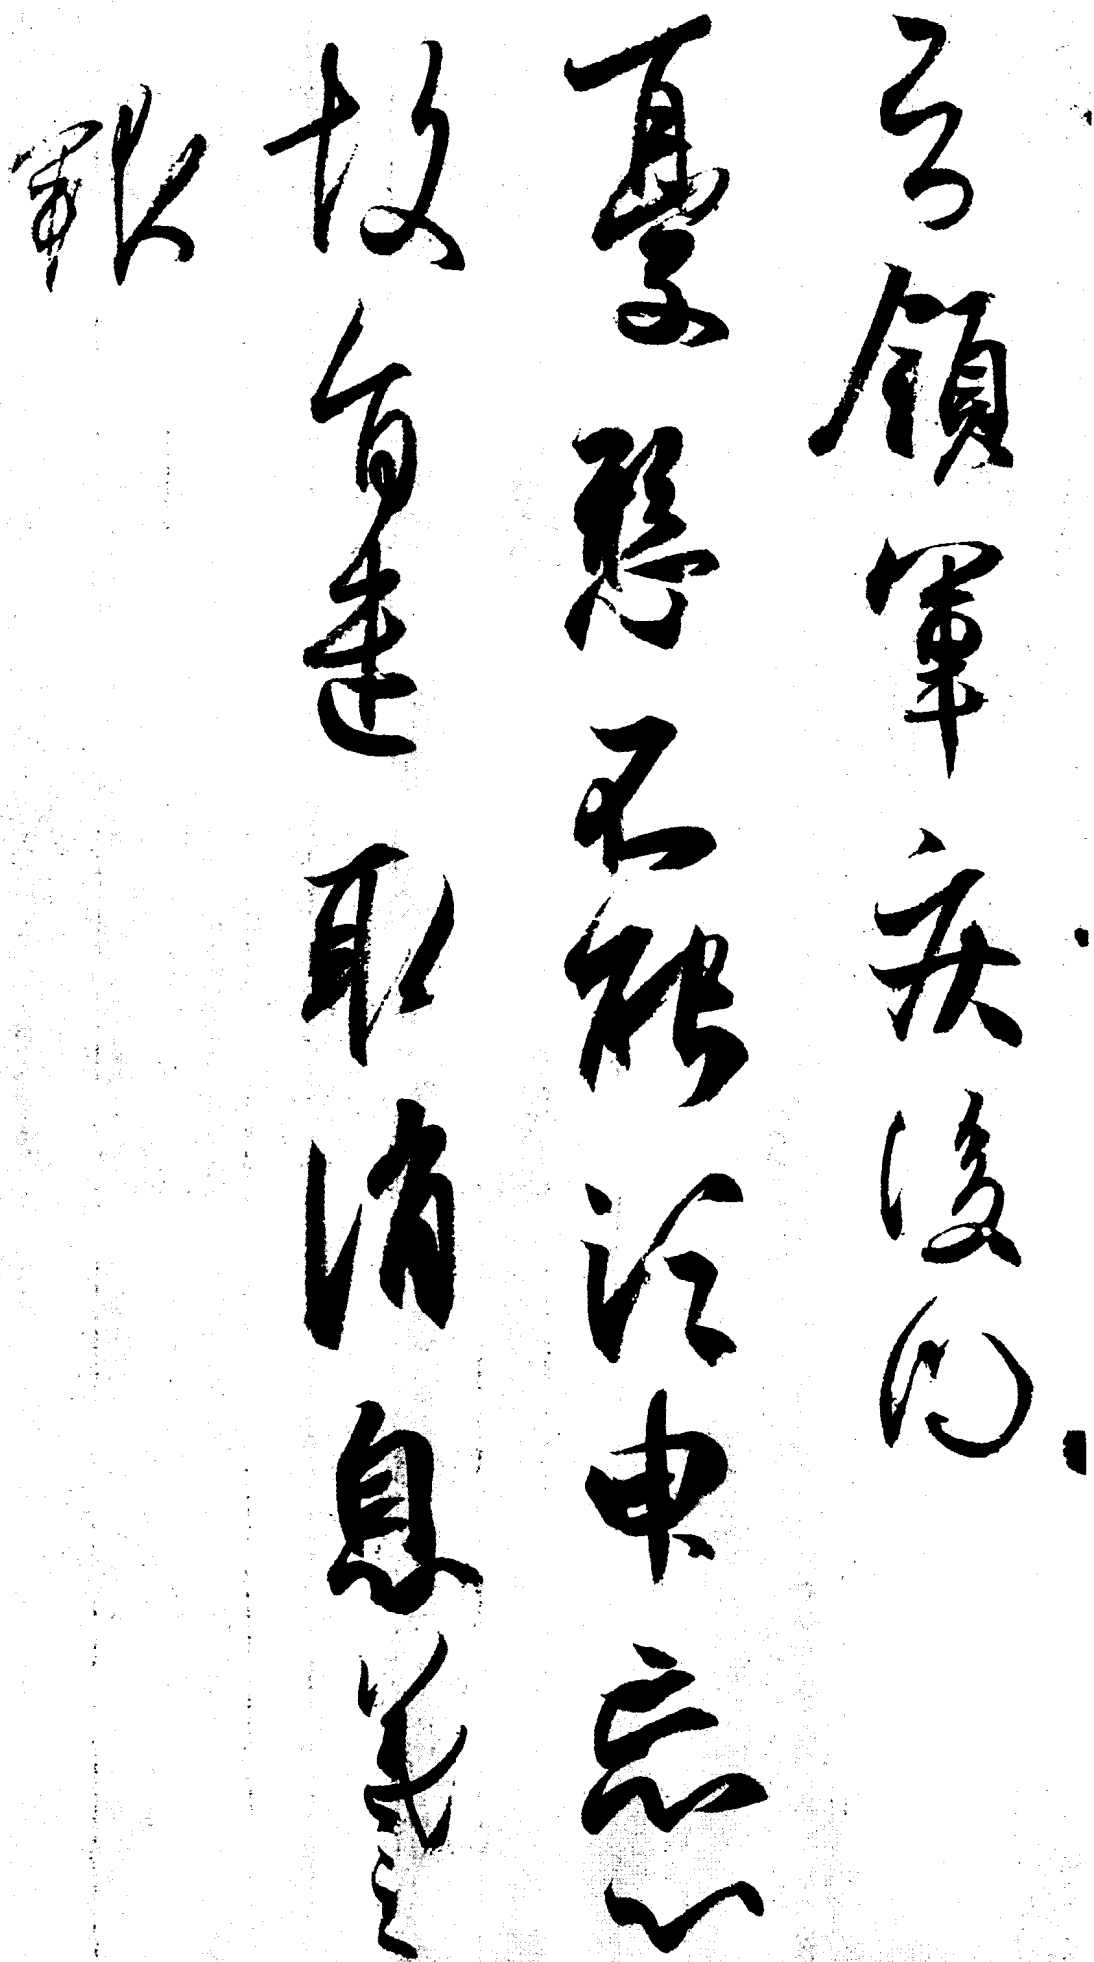 領軍疾後問
憂懸不能須臾忘心
故旨遣取消息羲之
報